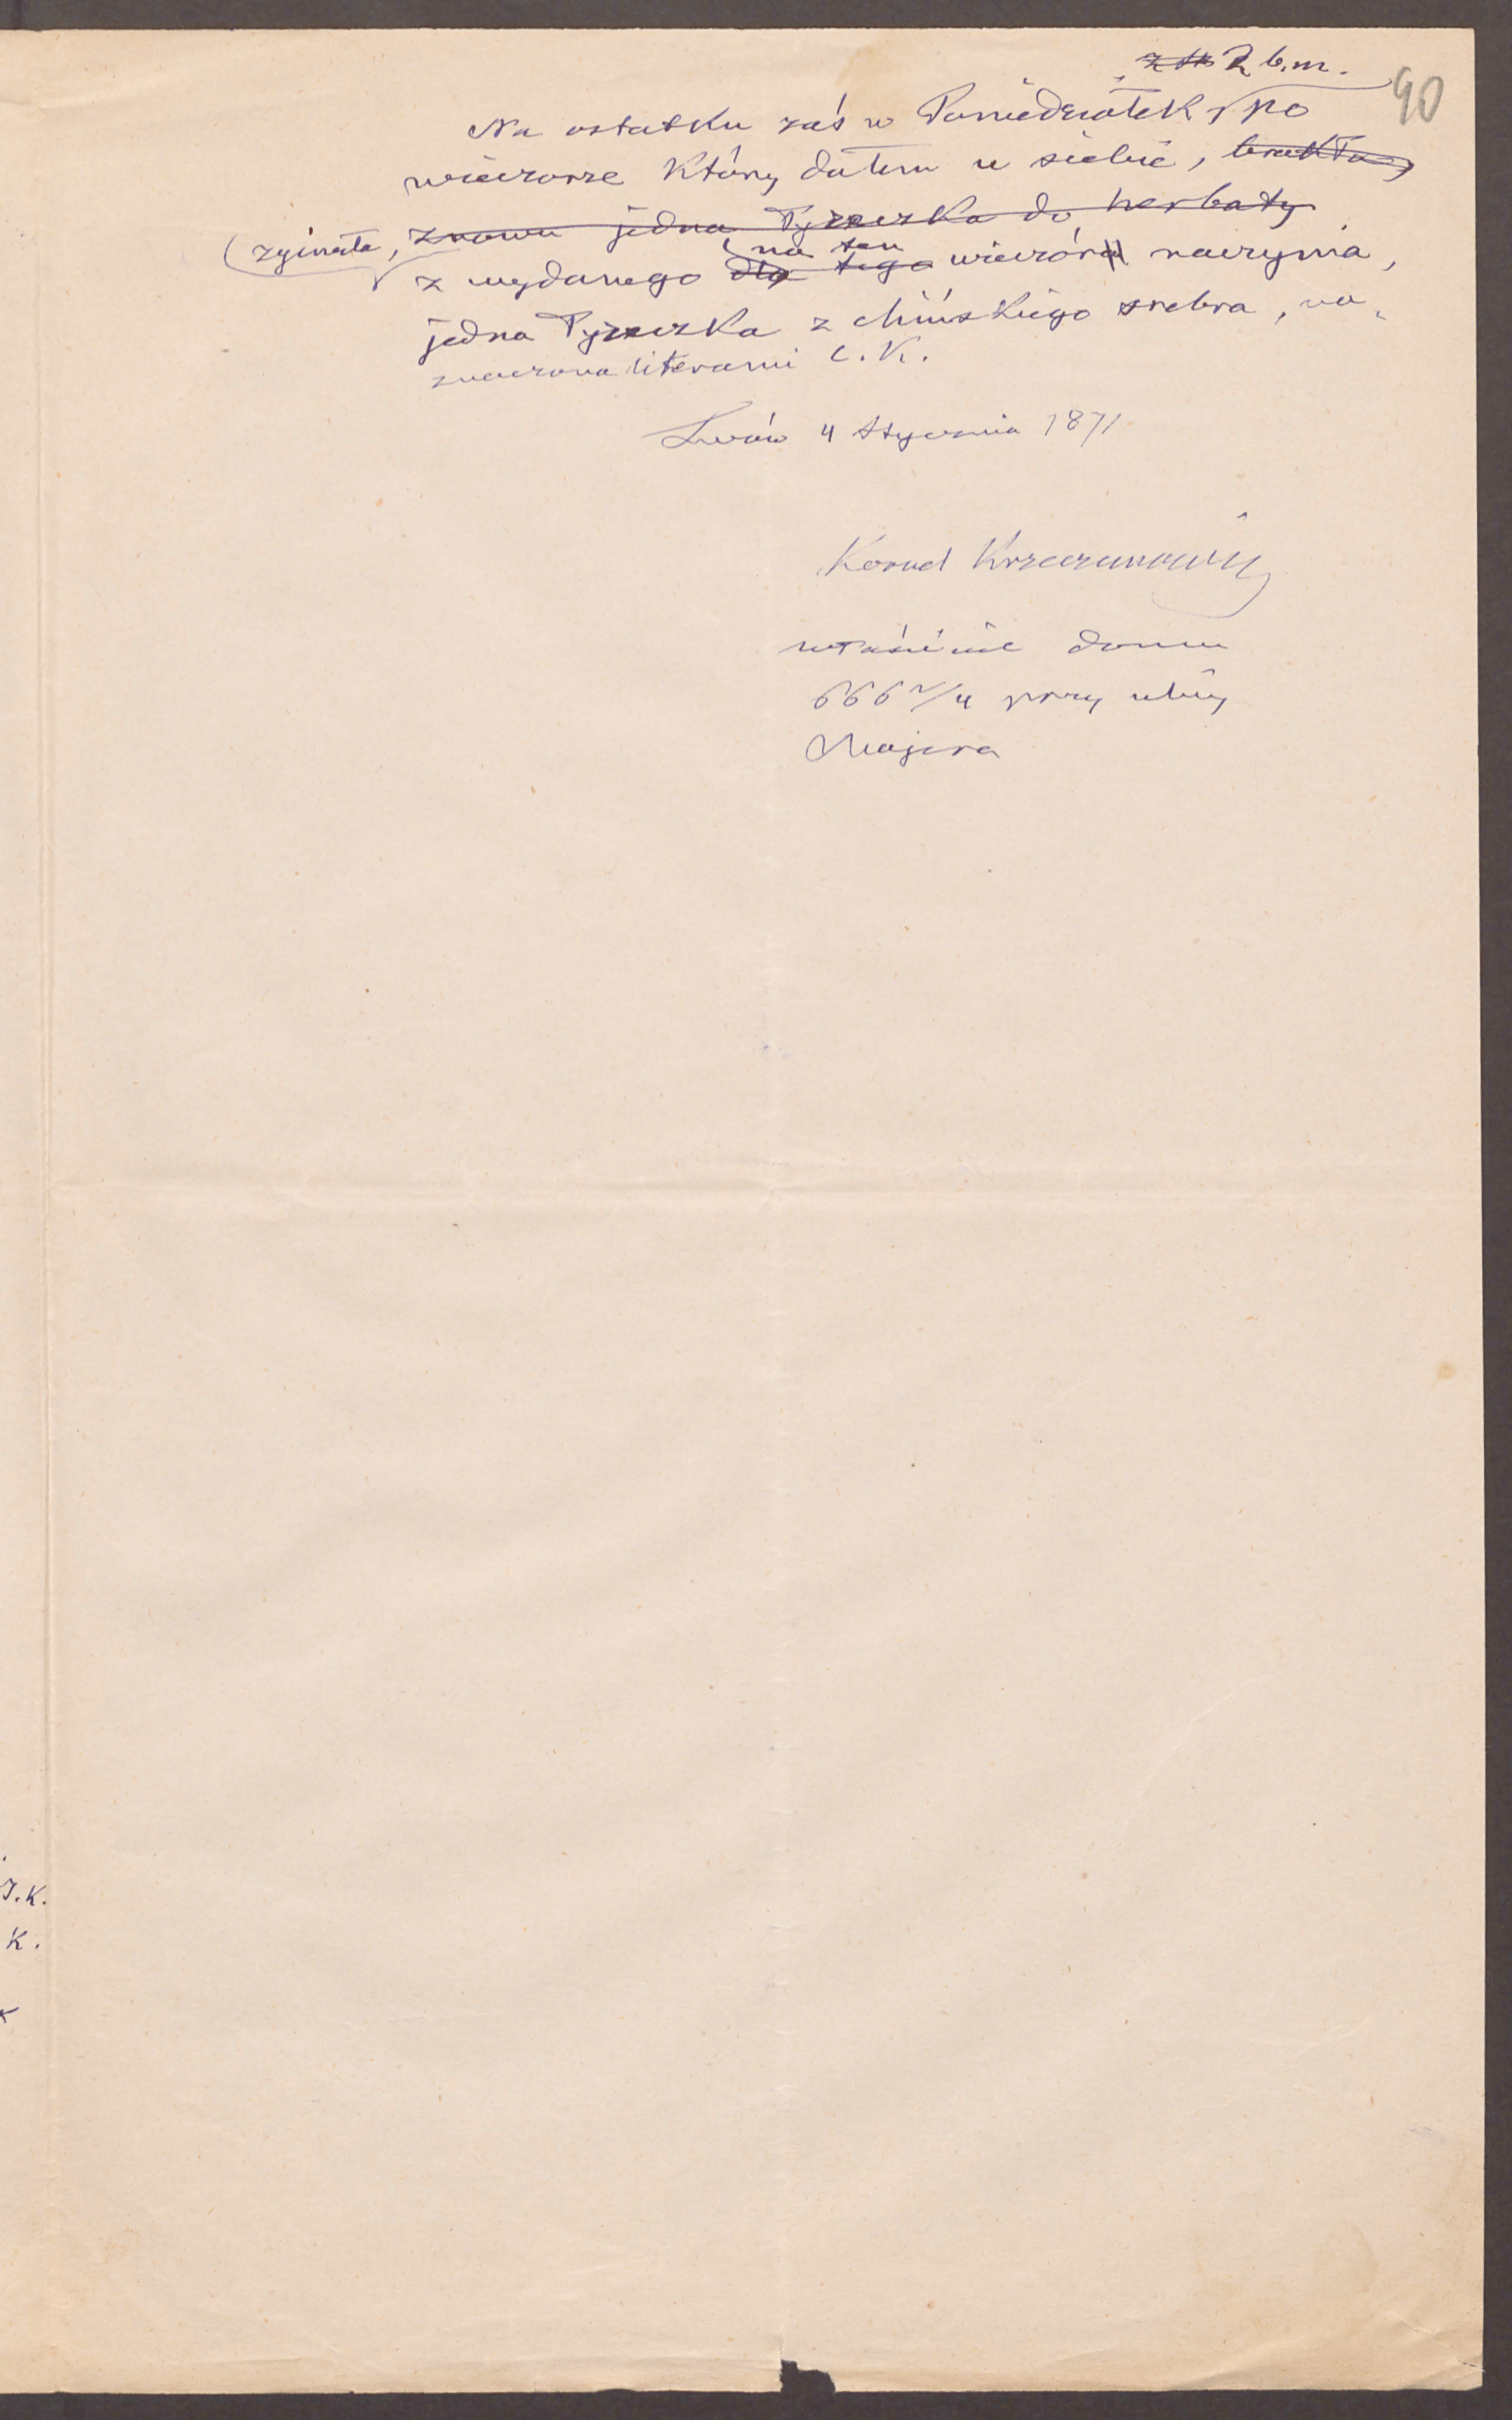 2 b.m.
90
Na ostatku zaś w Poniedziałek po
wieczorze który dałem u siebie, brakło
zginęła, znowu jedna łyżeczka do herbaty
na ten
z wydanego dla tego wieczóra naczynia,
jedna łyżeczka z chińskiego srebra, na-
znaczona literami C. K.
Lwów 4 Stycznia 1871
Kornel Krzeczunowicz
właściciel domu
666 2/4 przy ulicy
Majera
J.K.
K.